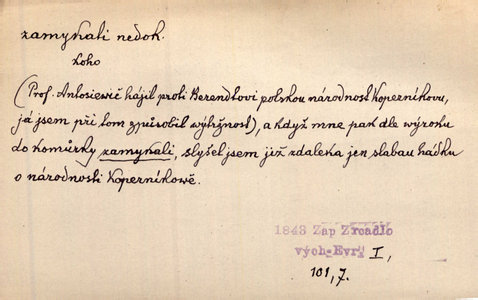 zamykati nedok.
koho
(Prof. Antosiewič hájil proti Berendtovi polskou národnost Koperníkovu,
já jsem při tom způsobil výtržnost), a když mne pak dle výroku
do komůrky zamykali, slyšel jsem již zdaleka jen slabou hádku
o národnosti Koperníkově.
1843 Zap Zrcadlo
vých-Evr. I,
101, 7.